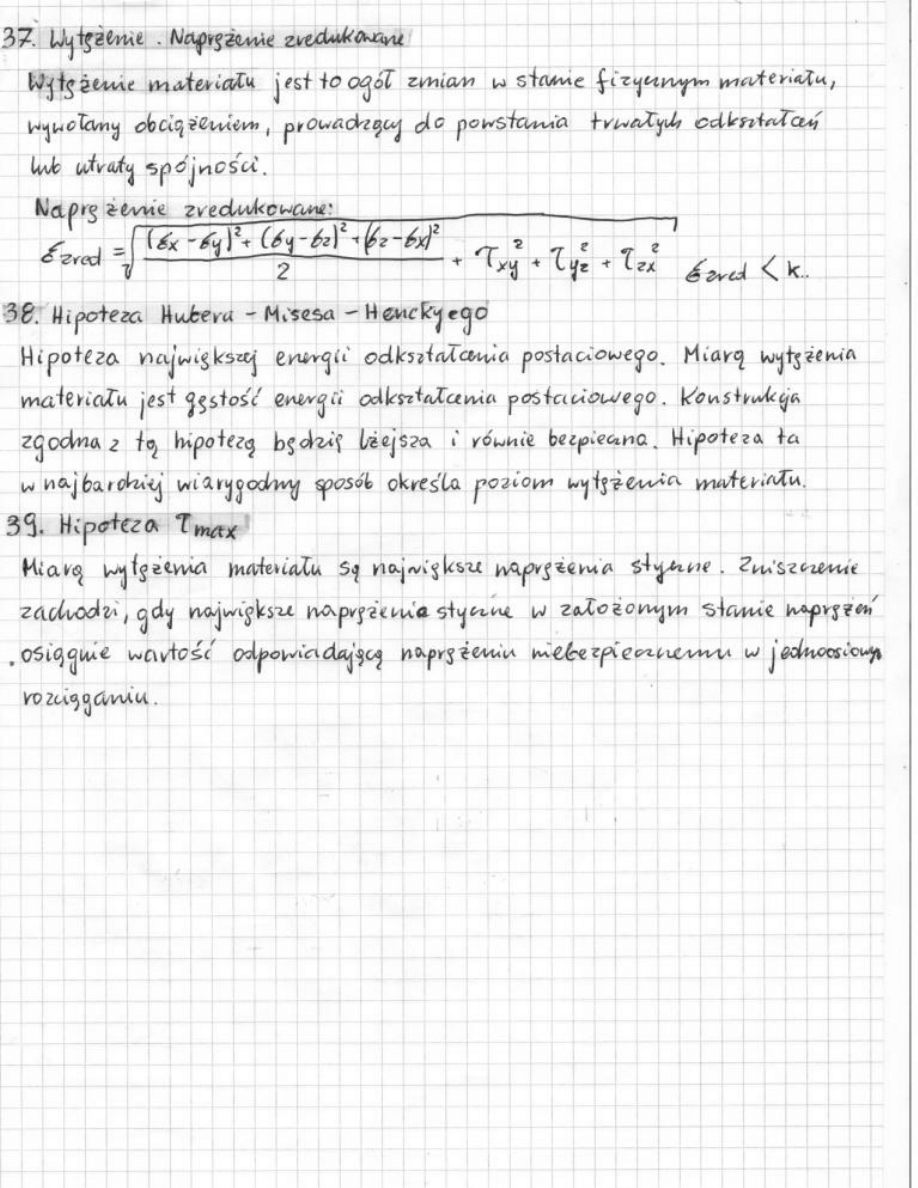 37. Wytężenie. Naprężenie zredukowane
Wytężenie materiału jest to ogół zmian w stanie fizycznym materiału,
wywołany obciążeniem, prowadzący do powstania trwałych odkształceń
lub utraty spójności.
Naprężenie zredukowane:
σzred = √((σx - σy)² + (σy - σz)² + (σz - σx)²)/2 + τxy² + τyz² + τzx² σzred < k..
38. Hipoteza Hubera - Misesa - Henckyego
Hipoteza największej energii odkształcenia postaciowego. Miarą wytężenia
materiału jest gęstość energii odkształcenia postaciowego. Konstrukcja
zgodna z tą hipotezą będzię lżejsza i równie bezpieczna. Hipoteza ta
w najbardziej wiarygodny sposób określa poziom wytężenia materiału.
39. Hipoteza τmax
Miarą wytężenia materiału są największe naprężenia styczne. Zniszczenie
zachodzi, gdy największe naprężenie styczne w założonym stanie naprężeń
osiągnie wartość odpowiadającą naprężeniu niebezpiecznemu w jednoosiowym
rozciąganiu.